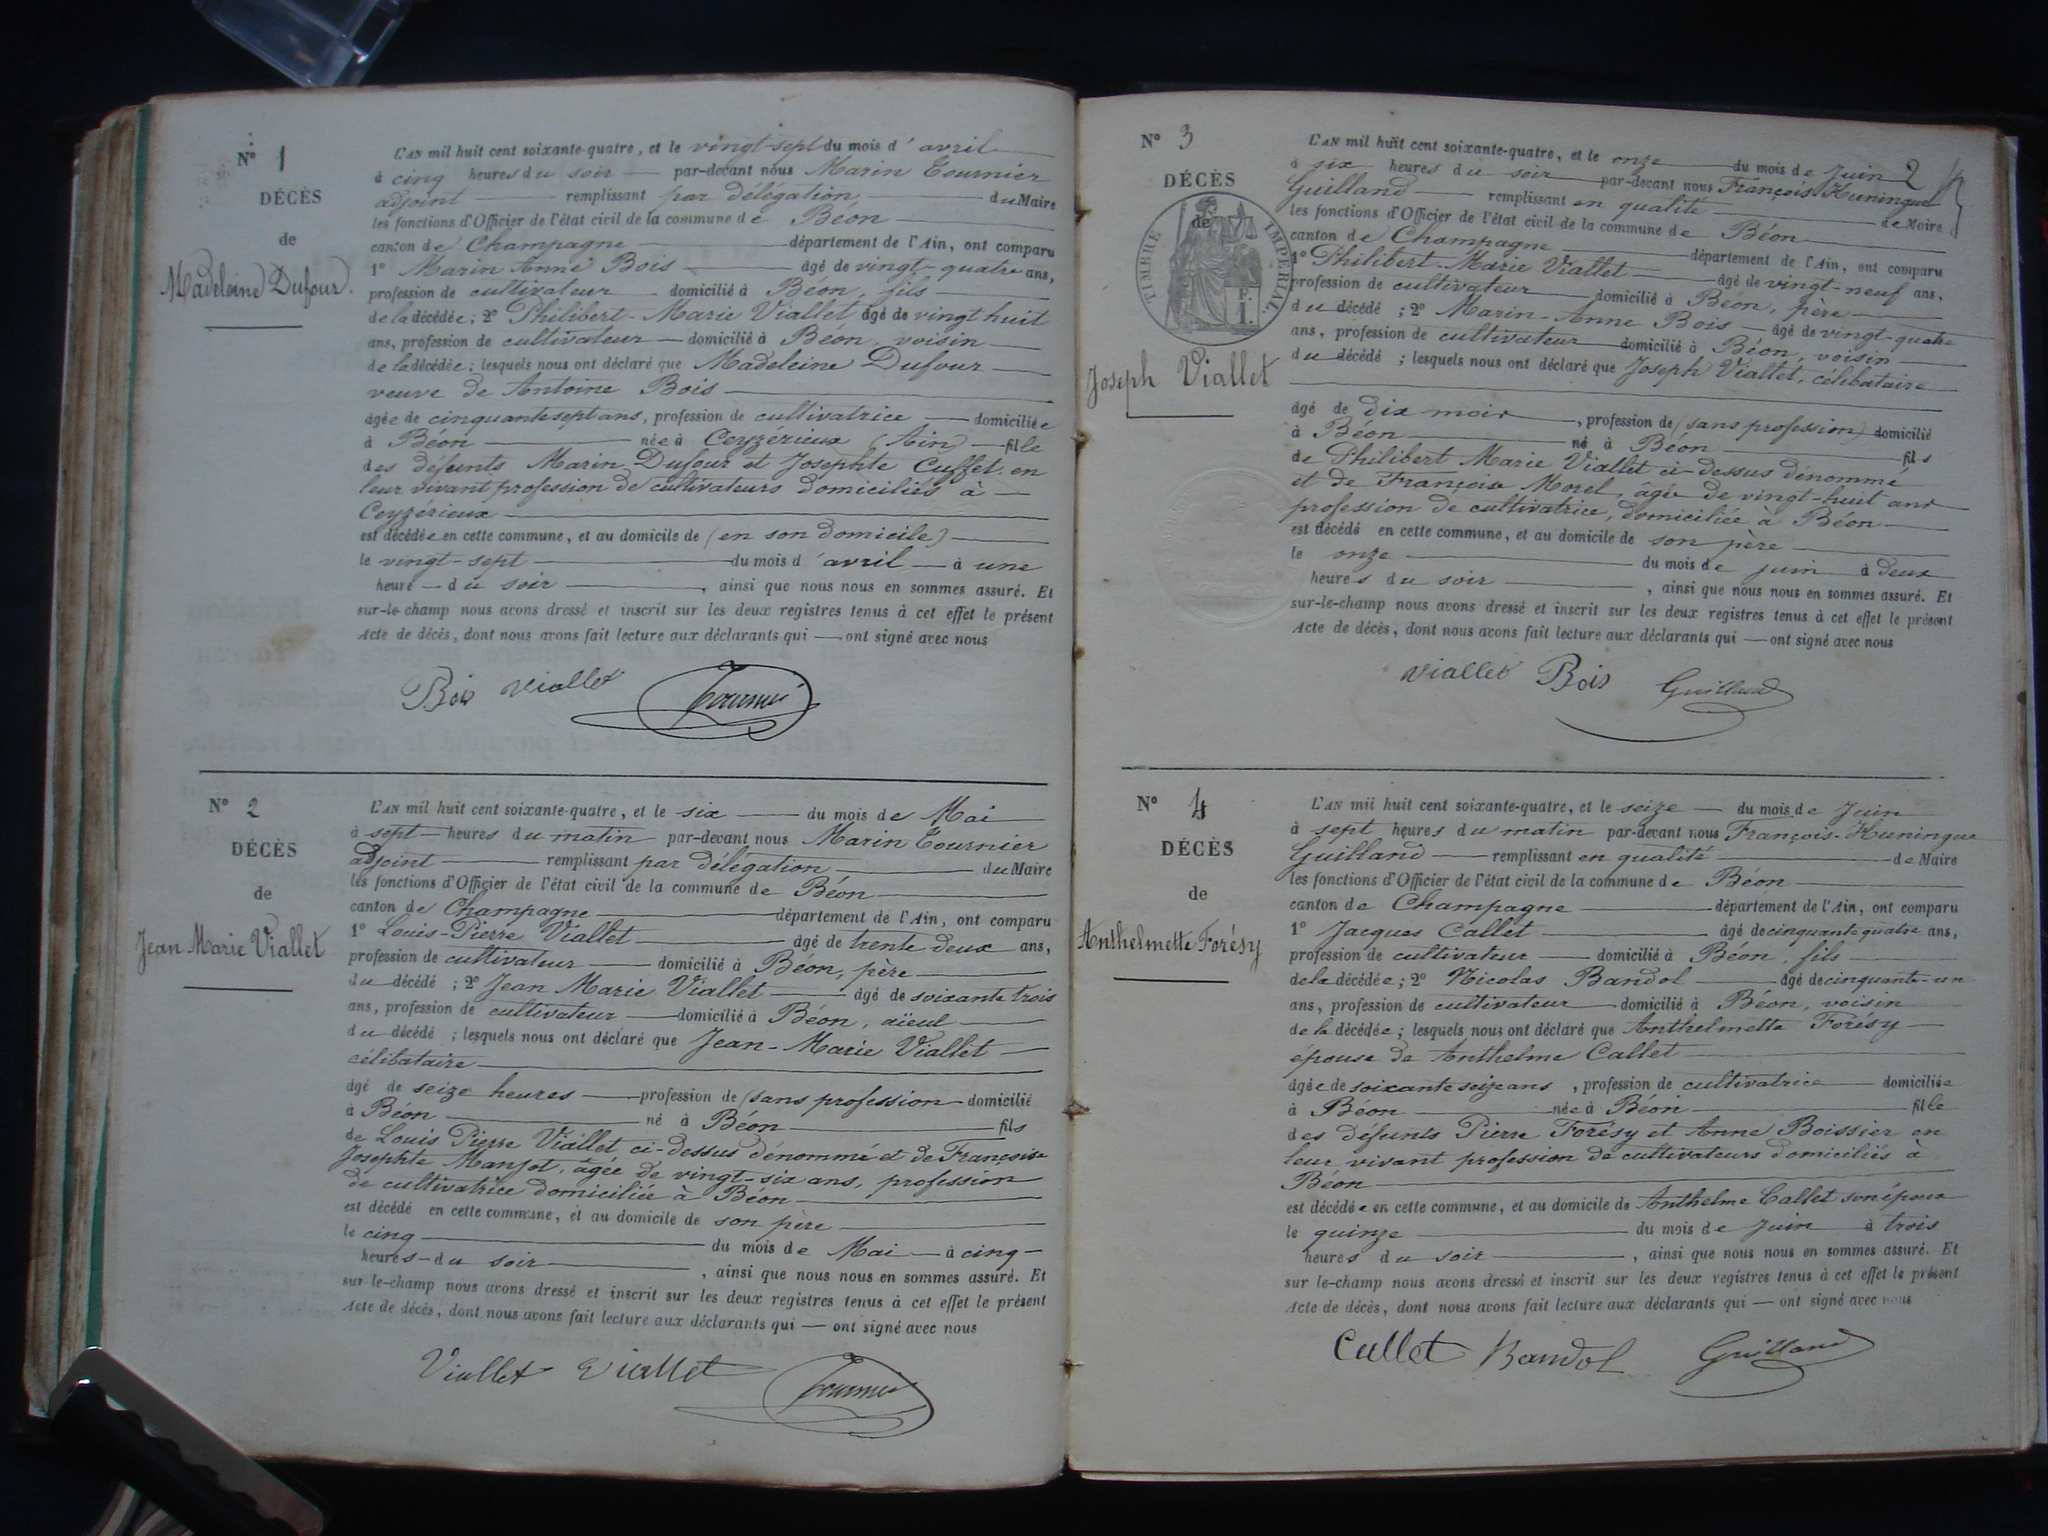 N° 1
DÉCÈS
de
Madeleine Dufour.
L'AN mil huit cent soixante-quatre, et le vingt-sept du mois d'avril
à cinq heures du soir par-devant nous Marin Tournier
adjoint remplissant par délégation du Maire
les fonctions d'Officier de l'état civil de la commune de Béon
canton de Champagne département de l'Ain, ont comparu
1° Marin Anne Bois âgé de vingt-quatre ans,
profession de cultivateur domicilié à Béon, fils
de la décédée; 2° Philibert-Marie Viallet âgé de vingt huit
ans, profession de cultivateur domicilié à Béon, voisin
de la décédée; lesquels nous ont déclaré que Madeleine Dufour
veuve de Antoine Bois
âgée de cinquante sept ans, profession de cultivatrice domiciliée
à Béon née à Ceyzérieux (Ain) fille
des défunts Marin Dufour et Josephte Cuffet en
leur vivant profession de cultivateurs domiciliés à
Ceyzérieux
est décédée en cette commune, et au domicile de (en son domicile)
le vingt-sept du mois d'avril à une
heure du soir, ainsi que nous nous en sommes assuré. Et
sur-le-champ nous avons dressé et inscrit sur les deux registres tenus à cet effet le présent
Acte de décès, dont nous avons fait lecture aux déclarants qui ont signé avec nous
Bois Viallet Tournier
N° 2
DÉCÈS
de
Jean Marie Viallet
L'AN mil huit cent soixante-quatre, et le six du mois de Mai
à sept heures du matin par-devant nous Marin Tournier
adjoint remplissant par délégation du Maire
les fonctions d'Officier de l'état civil de la commune de Béon
canton de Champagne département de l'Ain, ont comparu
1° Louis-Pierre Viallet âgé de trente deux ans,
profession de cultivateur domicilié à Béon, père
du décédé; 2° Jean Marie Viallet âgé de soixante trois
ans, profession de cultivateur domicilié à Béon, aïeul
du décédé; lesquels nous ont déclaré que Jean-Marie Viallet
célibataire
âgé de seize heures profession de (sans profession domicilié
à Béon né à Béon fils
de Louis Pierre Viallet, ci-dessus dénommé et de Françoise
Josephte Manjot, âgée de vingt-six ans, profession
de cultivatrice domiciliée à Béon
est décédé en cette commune, et au domicile de son père
le cinq du mois de Mai à cinq
heures du soir, ainsi que nous nous en sommes assuré. Et
sur le-champ nous avons dressé et inscrit sur les deux registres tenus à cet effet le présent
Acte de décès, dont nous avons fait lecture aux déclarants qui ont signé avec nous
Viallet Viallet Tournier
2
N° 3
DÉCÈS
de
TIMBRE IMPÉRIAL
Joseph Viallet
L'AN mil huit cent soixante-quatre, et le onze du mois de Juin
à six heures du soir par-devant nous François Huningue
Guilland remplissant en qualité de Maire
les fonctions d'Officier de l'état civil de la commune de Béon
canton de Champagne département de l'Ain, ont comparu
1° Philibert-Marie Viallet âgé de vingt-neuf ans,
profession de cultivateur domicilié à Béon, père
du décédé; 2° Marin-Anne Bois âgé de vingt-quatre
ans, profession de cultivateur domicilié à Béon, voisin
du décédé; lesquels nous ont déclaré que Joseph Viallet, célibataire
âgé de dix mois, profession de (sans profession) domicilié
à Béon né à Béon fils
de Philibert Marie Viallet ci-dessus dénommé
et de Françoise Morel, âgée de vingt-huit ans
profession de cultivatrice, domiciliée à Béon
est décédé en cette commune, et au domicile de son père
le onze du mois de juin à deux
heures du soir, ainsi que nous nous en sommes assuré. Et
sur-le-champ nous avons dressé et inscrit sur les deux registres tenus à cet effet le présent
Acte de décès, dont nous avons fait lecture aux déclarants qui ont signé avec nous
Viallet Bois Guilland
N° 4
DÉCÈS
de
Anthelmette Forésy
L'AN mil huit cent soixante-quatre, et le seize du mois de Juin
à sept heures du matin par-devant nous François-Huningue
Guilland remplissant en qualité de Maire
les fonctions d'Officier de l'état civil de la commune de Béon
canton de Champagne département de l'Ain, ont comparu
1° Jacques Callet âgé de cinquante quatre ans,
profession de cultivateur domicilié à Béon, fils
de la décédée; 2° Nicolas Bandol âgé de cinquante-un
ans, profession de cultivateur domicilié à Béon, voisin
de la décédée; lesquels nous ont déclaré que Anthelmette Forésy
épouse de Anthelme Callet
âgée de soixante seize ans, profession de cultivatrice domiciliée
à Béon née à Béon fille
des défunts Pierre Forésy et Anne Boissier en
leur vivant profession de cultivateurs domiciliés à
Béon
est décédée en cette commune, et au domicile de Anthelme Callet son époux
le quinze du mois de Juin à trois
heures du soir, ainsi que nous nous en sommes assuré. Et
sur le-champ nous avons dressé et inscrit sur les deux registres tenus à cet effet le présent
Acte de décès, dont nous avons fait lecture aux déclarants qui ont signé avec nous
Callet Bandol Guilland